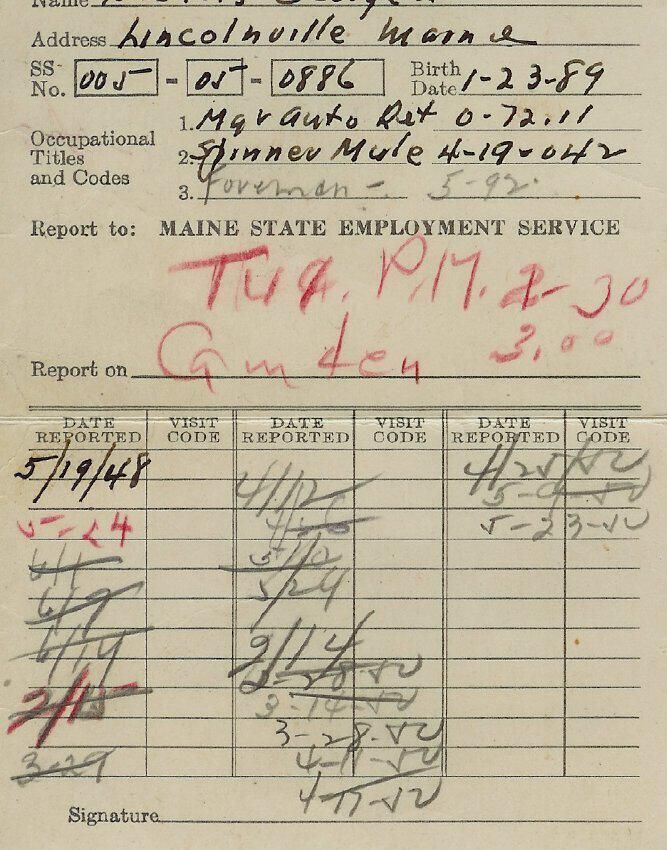 Name
Address Lincolnville Maine
SS No. 005 - 05 - 0886 Birth Date 1-23-89
Occupational Titles and Codes
1. Mgr Auto Ret 0-72.11
2. Spinner Mule 4-19-042
3. Foreman - 5-92.
Report to: MAINE STATE EMPLOYMENT SERVICE
Tue. P.M. 2-30
Camden 3.00
Report on
DATE REPORTED VISIT CODE DATE REPORTED VISIT CODE DATE REPORTED VISIT CODE
5/19/48 4/25/52
4/12 5-9-52
5-24 4/26 5-23-52
6/1 5/10
6/9 5/24
6/14 2/14
2-28-52
2/15 3-14-52
3-28-52
3-29 4-11-52
4-17-52
Signature